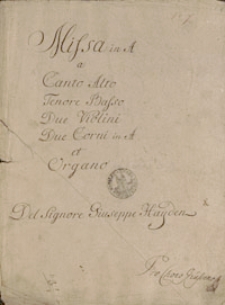 Missa in A
a
Canto Alto
Tenore Basso
Due Violini
Due Corni in A
et
Organo
Del Signore Giuseppe Hayden
Pro